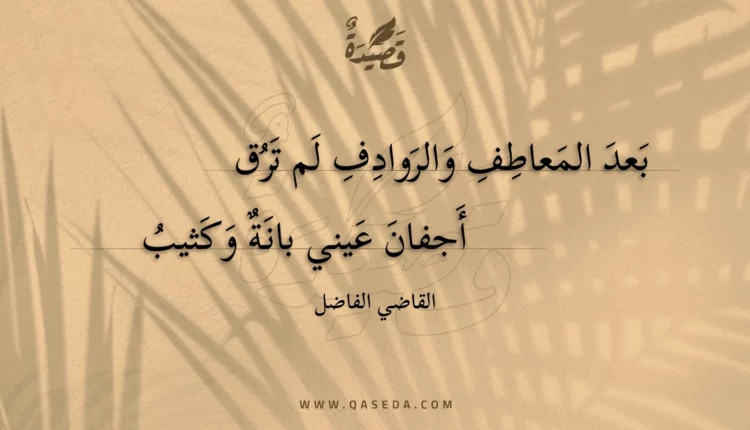 قَصِيدَةٌ
بَعدَ المَعاطِفِ وَالرَوادِفِ لَم تَرُق
أَجفانَ عَيني بانَةٌ وَكَثيبُ
القاضي الفاضل
WWW.QASEDA.COM